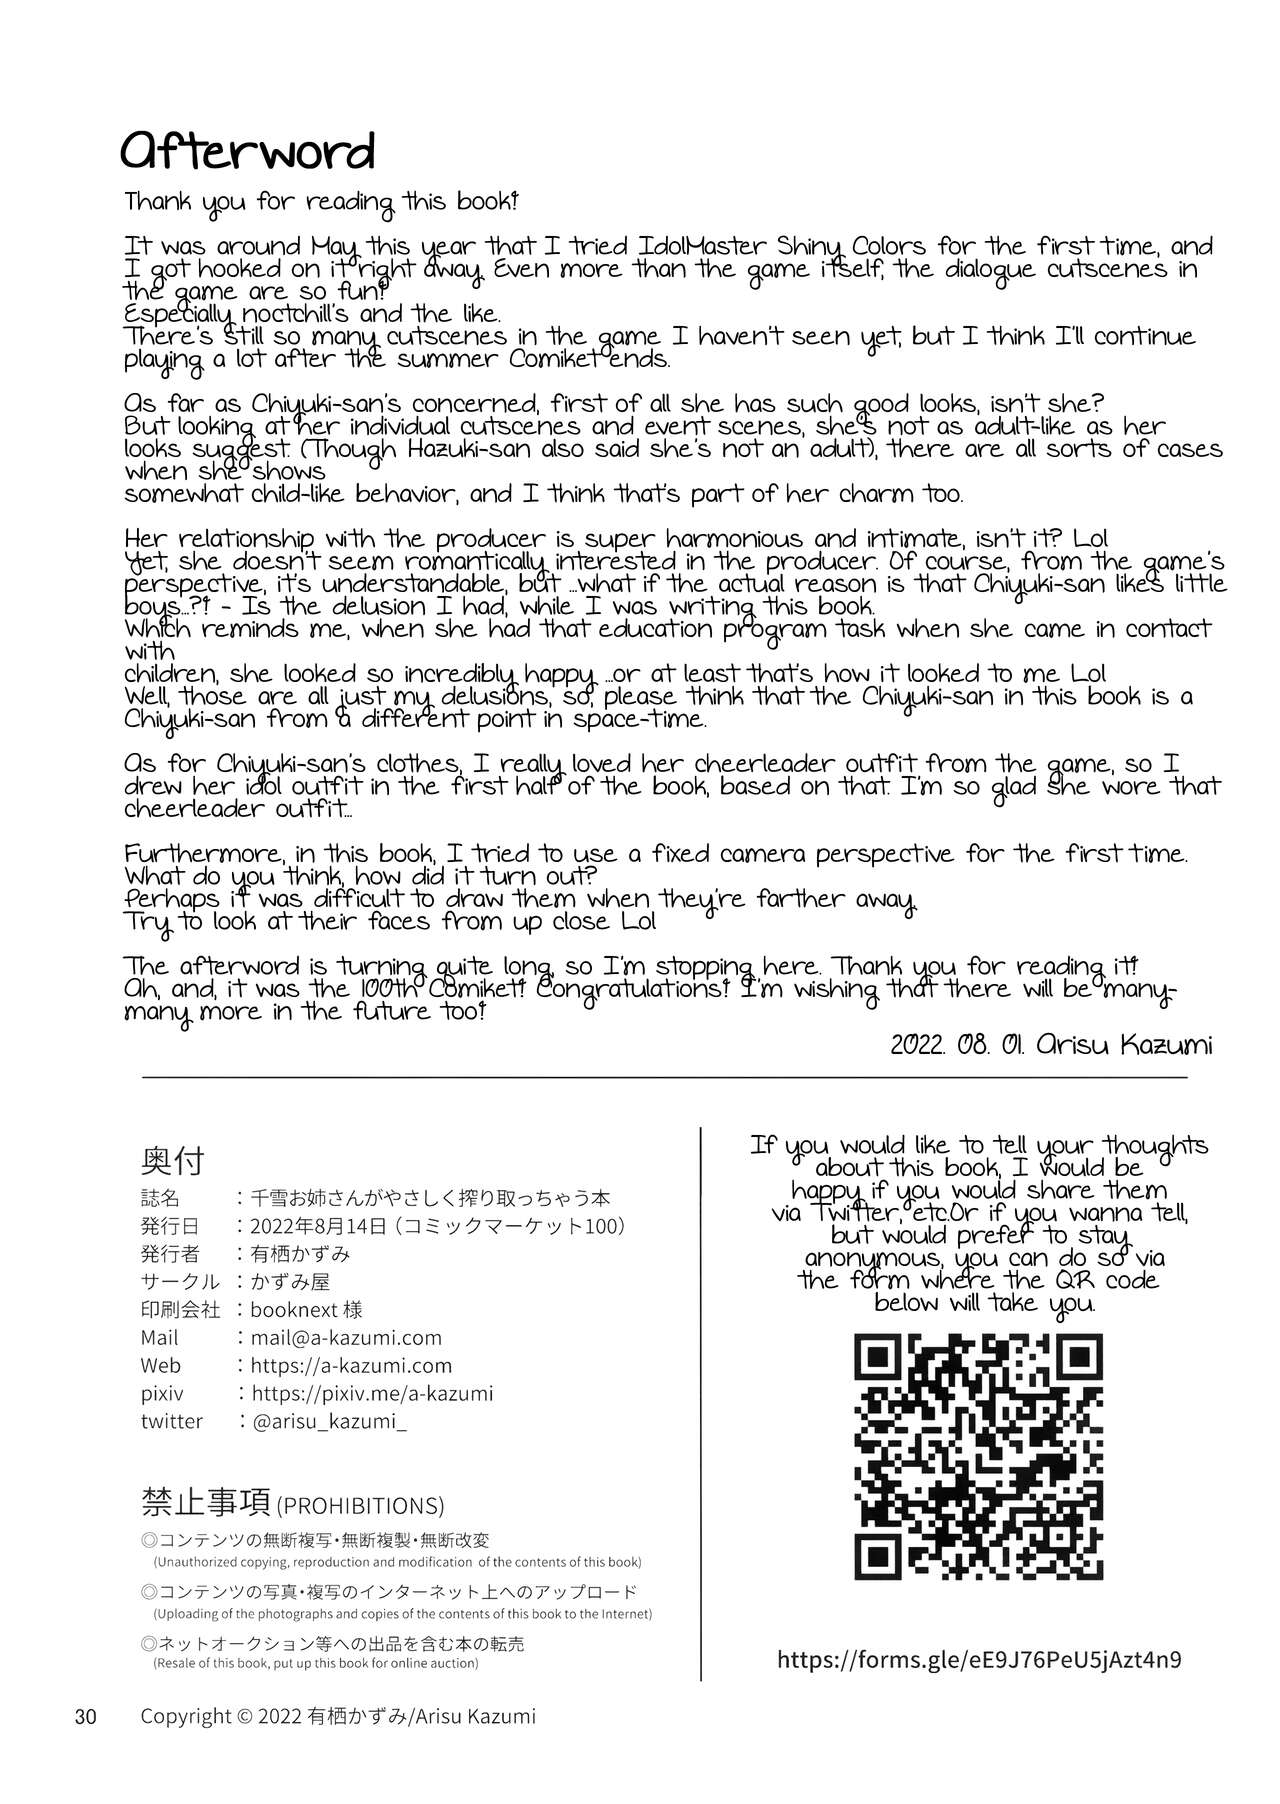 Afterword
Thank you for reading this book!
It was around May this year that I tried IdolMaster Shiny Colors for the first time, and
I got hooked on it right away. Even more than the game itself, the dialogue cutscenes in
the game are so fun!
Especially noctchill's and the like.
There's still so many cutscenes in the game I haven't seen yet, but I think I'll continue
playing a lot after the summer Comiket ends.
As far as Chiyuki-san's concerned, first of all she has such good looks, isn't she?
But looking at her individual cutscenes and event scenes, she's not as adult-like as her
looks suggest. (Though Hazuki-san also said she's not an adult), there are all sorts of cases
when she shows
somewhat child-like behavior, and I think that's part of her charm too.
Her relationship with the producer is super harmonious and intimate, isn't it? Lol
Yet, she doesn't seem romantically interested in the producer. Of course, from the game's
perspective, it's understandable, but ...what if the actual reason is that Chiyuki-san likes little
boys...?! - Is the delusion I had, while I was writing this book.
Which reminds me, when she had that education program task when she came in contact
with
children, she looked so incredibly happy ...or at least that's how it looked to me Lol
Well, those are all just my delusions, so, please think that the Chiyuki-san in this book is a
Chiyuki-san from a different point in space-time.
As for Chiyuki-san's clothes, I really loved her cheerleader outfit from the game, so I
drew her idol outfit in the first half of the book, based on that. I'm so glad she wore that
cheerleader outfit...
Furthermore, in this book, I tried to use a fixed camera perspective for the first time.
What do you think, how did it turn out?
Perhaps it was difficult to draw them when they're farther away.
Try to look at their faces from up close Lol
The afterword is turning quite long, so I'm stopping here. Thank you for reading it!
Ah, and, it was the 100th Comiket! Congratulations! I'm wishing that there will be many-
many more in the future too!
2022. 08. 01. Arisu Kazumi
奥付
誌名 ：千雪お姉さんがやさしく搾り取っちゃう本
発行日 ：2022年8月14日（コミックマーケット100）
発行者 ：有栖かずみ
サークル ：かずみ屋
印刷会社 ：booknext 様
Mail ：mail@a-kazumi.com
Web ：https://a-kazumi.com
pixiv ：https://pixiv.me/a-kazumi
twitter ：@arisu_kazumi_
禁止事項 (PROHIBITIONS)
◎コンテンツの無断複写・無断複製・無断改変
(Unauthorized copying, reproduction and modification of the contents of this book)
◎コンテンツの写真・複写のインターネット上へのアップロード
(Uploading of the photographs and copies of the contents of this book to the Internet)
◎ネットオークション等への出品を含む本の転売
(Resale of this book, put up this book for online auction)
If you would like to tell your thoughts
about this book, I would be
happy if you would share them
via Twitter, etc.Or if you wanna tell,
but would prefer to stay
anonymous, you can do so via
the form where the QR code
below will take you.
https://forms.gle/eE9J76PeU5jAzt4n9
30 Copyright © 2022 有栖かずみ/Arisu Kazumi